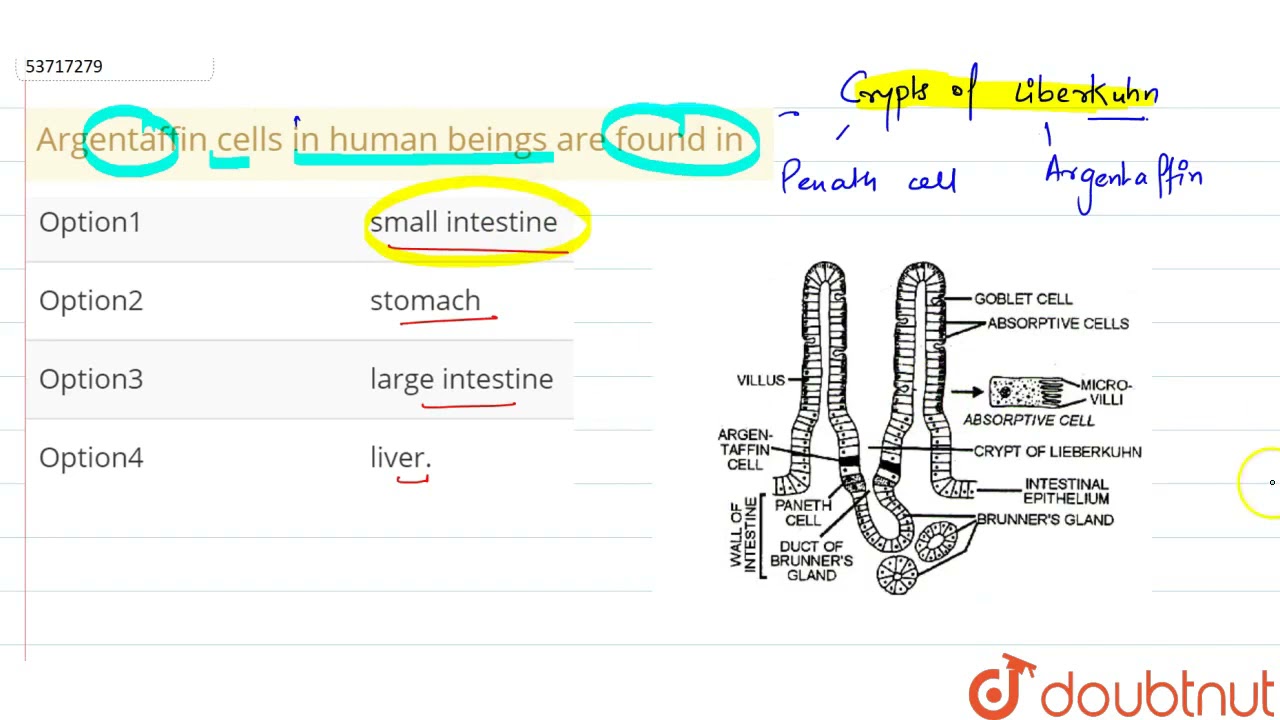 53717279
Crypts of Liberkuhn
Argentaffin cells in human beings are found in
Penath cell
Argentaffin
Option1 small intestine
Option2 stomach
Option3 large intestine
Option4 liver.
GOBLET CELL
ABSORPTIVE CELLS
VILLUS
MICRO-
VILLI
ABSORPTIVE CELL
ARGEN-
TAFFIN
CELL
CRYPT OF LIEBERKUHN
INTESTINAL
EPITHELIUM
PANETH
CELL
BRUNNER'S GLAND
WALL OF
INTESTINE
DUCT OF
BRUNNER'S
GLAND
doubtnut